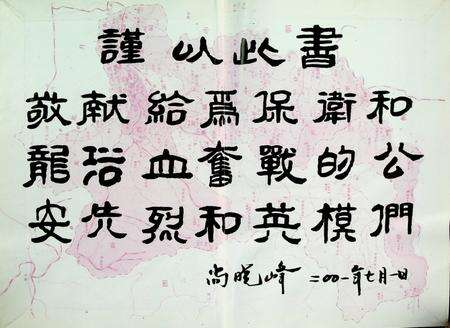 謹以此書
敬献給爲保衛和
龍浴血奮戰的公
安先烈和英模們
尚晓峰 二〇〇一年七月一日